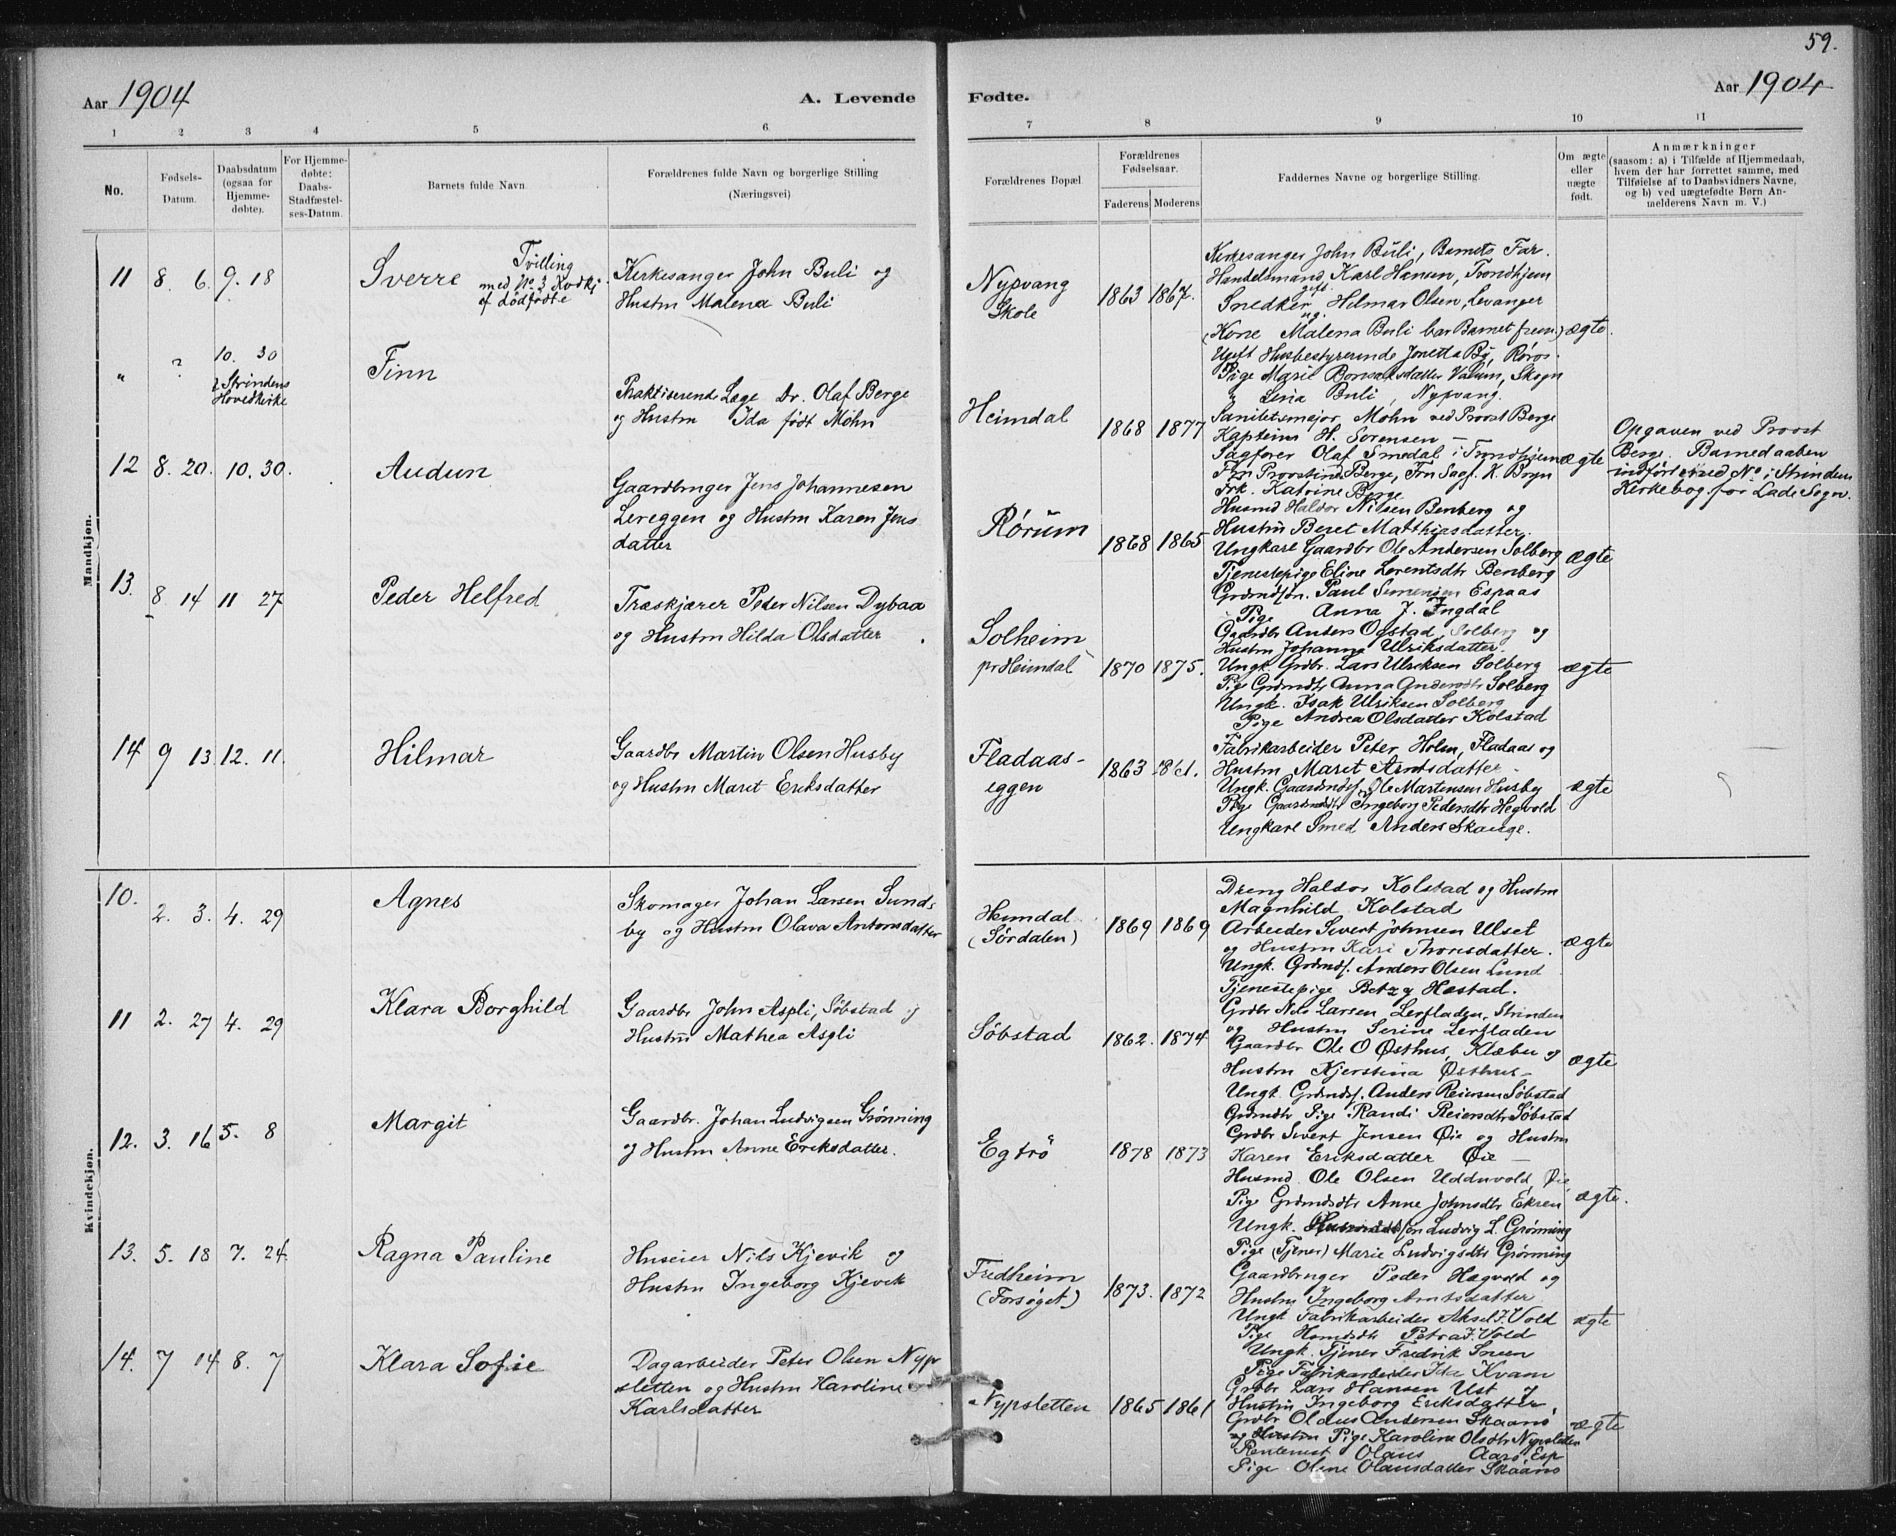 59.
Aar 1904
A. Levende
Fødte.
Aar 1904
1 2 3 4 5 6
7 8 9 10 11
No.
Fødsels-
Datum.
Daabsdatum
(ogsaa for
Hjemme-
døbte).
For Hjemme-
døbte:
Daabs-
Stadfæstel-
ses-Datum.
Barnets fulde Navn
Forældrenes fulde Navn og borgerlige Stilling
(Næringsvei)
Forældrenes Bopæl
Forældrenes
Fødselsaar.
Faderens Moderens
Faddernes Navne og borgerlige Stilling.
Om ægte
eller
uægte
født.
Anmærkninger
(saasom: a) i Tilfælde af Hjemmedaab,
hvem der har forrettet samme, med
Tilføielse af to Daabsvidners Navne,
og b) ved uægtefødte Børn An-
melderens Navn m. V.)
Mandkjøn.
11 8. 6. 9. 18
Sverre
Tvilling
med No 3
af dödfödte
Kirkesanger John Buli og
Hustru Malena Buli
Nypvang
Skole
1863 1867.
Kirkesanger John Buli, Barnets Far.
Handelsmand Karl Hansen, Trondhjem
gift
Snedker Hilmar Olsen, Levanger
ug.
(Kone Malena Buli bar Barnet frem)
Ugift Husbestyrerinde Jonetta By, Røros.
Pige Marie Valum, Skogn
Lina Buli, Nypvang.
ægte.
" ? 10. 30
i Strindens
Hovedkirke
Finn
Praktiserende Læge Dr. Olaf Berge
og Hustru Ida født Mohn
Heimdal
1868 1877
Sanitetsmajor Mohn ved Provst Berge
Kaptein H. Sørensen —
Sagfører Olaf Smedal i Trondhjem
Fru Provstinde Berge, Fru Sagf. K. Bryn
Frk. Katrine Berge
ægte
Opgaven ved Provst
Berge. Barnedaaben
indført med No i Strindens
Kirkebog for Lade Sogn.
12 8. 20. 10. 30.
Audun
Gaardbruger Jens Johannesen
Lereggen og Hustru Karen Jens-
datter
Rørum
1868 1865
Husmd Haldor Nilsen Benberg og
Hustru Beret Matthiasdatter.
Ungkarl Gaardbr Ole Andersen Solberg
Tjenestepige Eline Lorentsdtr Benberg
Grdmdsøn. Paul Simensen Espaas
Pige Anna J. Engdal
ægte
13. 8 14 11 27
Peder Helfred
Træskjærer Peter Nilsen Dybaa
og Hustru Hilda Olsdatter
Solheim
pr Heimdal
1870 1875.
Gaardbr Anders Ogstad, Solberg og
Hustru Johanna Ulriksdatter.
Ungk. Grdbr. Lars Ulriksen Solberg
Pige Grdmdtr Anna Andersdtr Solberg
Ungk. Isak Ulriksen Solberg
Pige Andrea Olsdatter Kolstad
ægte
14 9 13. 12. 11.
Hilmar
Gaardbr Martin Olsen Husby
og Hustru Marit Eriksdatter
Fladaas-
eggen
1863
Fabrikarbeider Peter Holm, Fladaas og
Hustru Maret Arntsdatter.
Ungk. Gaardmdsf. Ole Martensen Husby
Pige Gaardmdtr Ingeborg Pedersdtr Hegvold
Ungkarl Smed Anders Skauge.
ægte
Kvindekjøn.
10. 2. 3. 4. 29
Agnes
Skomager Johan Larsen Sund-
by og Hustru Olava Antonsdatter
Heimdal
(Sørdalen)
1869 1869
Dreng Haldor Kolstad og Hustru
Magnhild Kolstad
Arbeider Sivert Johnsen Ulset
og Hustru Kari Thorsdatter.
Ungk. Grdmdsf. Anders Olsen Lund
Tjenestepige Betzy Hæstad.
ægte
11 2. 27 4. 29
Klara Borghild
Gaardbr John Aspli, Söbstad og
Hustru Mathea Aspli
Söbstad
1862. 1874
Grdbr Nels Larsen Lerfladen, Strinden
og Hustru Serine Lerfladen
Gaardbr Ole O Østhus, Klæbu og
Hustru Kjerstina Østhus
Ungk. Grdmdsf. Anders Reiersen Söbstad
Grdmdtr Pige Randi Reiersdtr Söbstad
ægte
12. 3. 16 5. 8
Margit
Gaardbr. Johan Ludvigsen Grønning
og Hustru Anne Eriksdatter.
Egtrö
1878 1873
Grdbr Sivert Jensen Øie og Hustru
Karen Eriksdatter Øie —
Husmd. Ole Olsen Udduvold, Øie
Pige Grdmdsdtr Anne Johnsdtr Ekren
Ungk. Husmandssøn Ludvig L. Grønning
Pige (Tjener) Marie Ludvigsdtr Grønning
ægte.
13. 5. 18 7. 24.
Ragna Pauline
Huseier Nils Kjevik og
Hustru Ingeborg Kjevik
Fredheim
(Forsøget)
1873. 1872
Gaardbruger Peder Hegvold og
Hustru Ingeborg Arntsdatter
Ungk Fabrikarbeider Aksel J. Vold
Pige Petra J. Vold
Ungk. Tjener Fredrik Soren
Pige Fabrikarbeider Ida Kvam
ægte
14. 7 14 8. 7
Klara Sofie
Dagarbeider Peter Olsen Nyp-
sletten og Hustru Karoline
Karlsdatter
Nypsletten
1865 1861
Grdbr Lars Hansen Ust og
Hustru Ingeborg Eriksdatter,
Grdbr Olaus Andersen Skaanö
og Hustru Pige Karoline Olsdtr Nypsletten
Rentenist Olaus Aarö, Esp
Pige Oline Olausdatter Skaanö
ægte